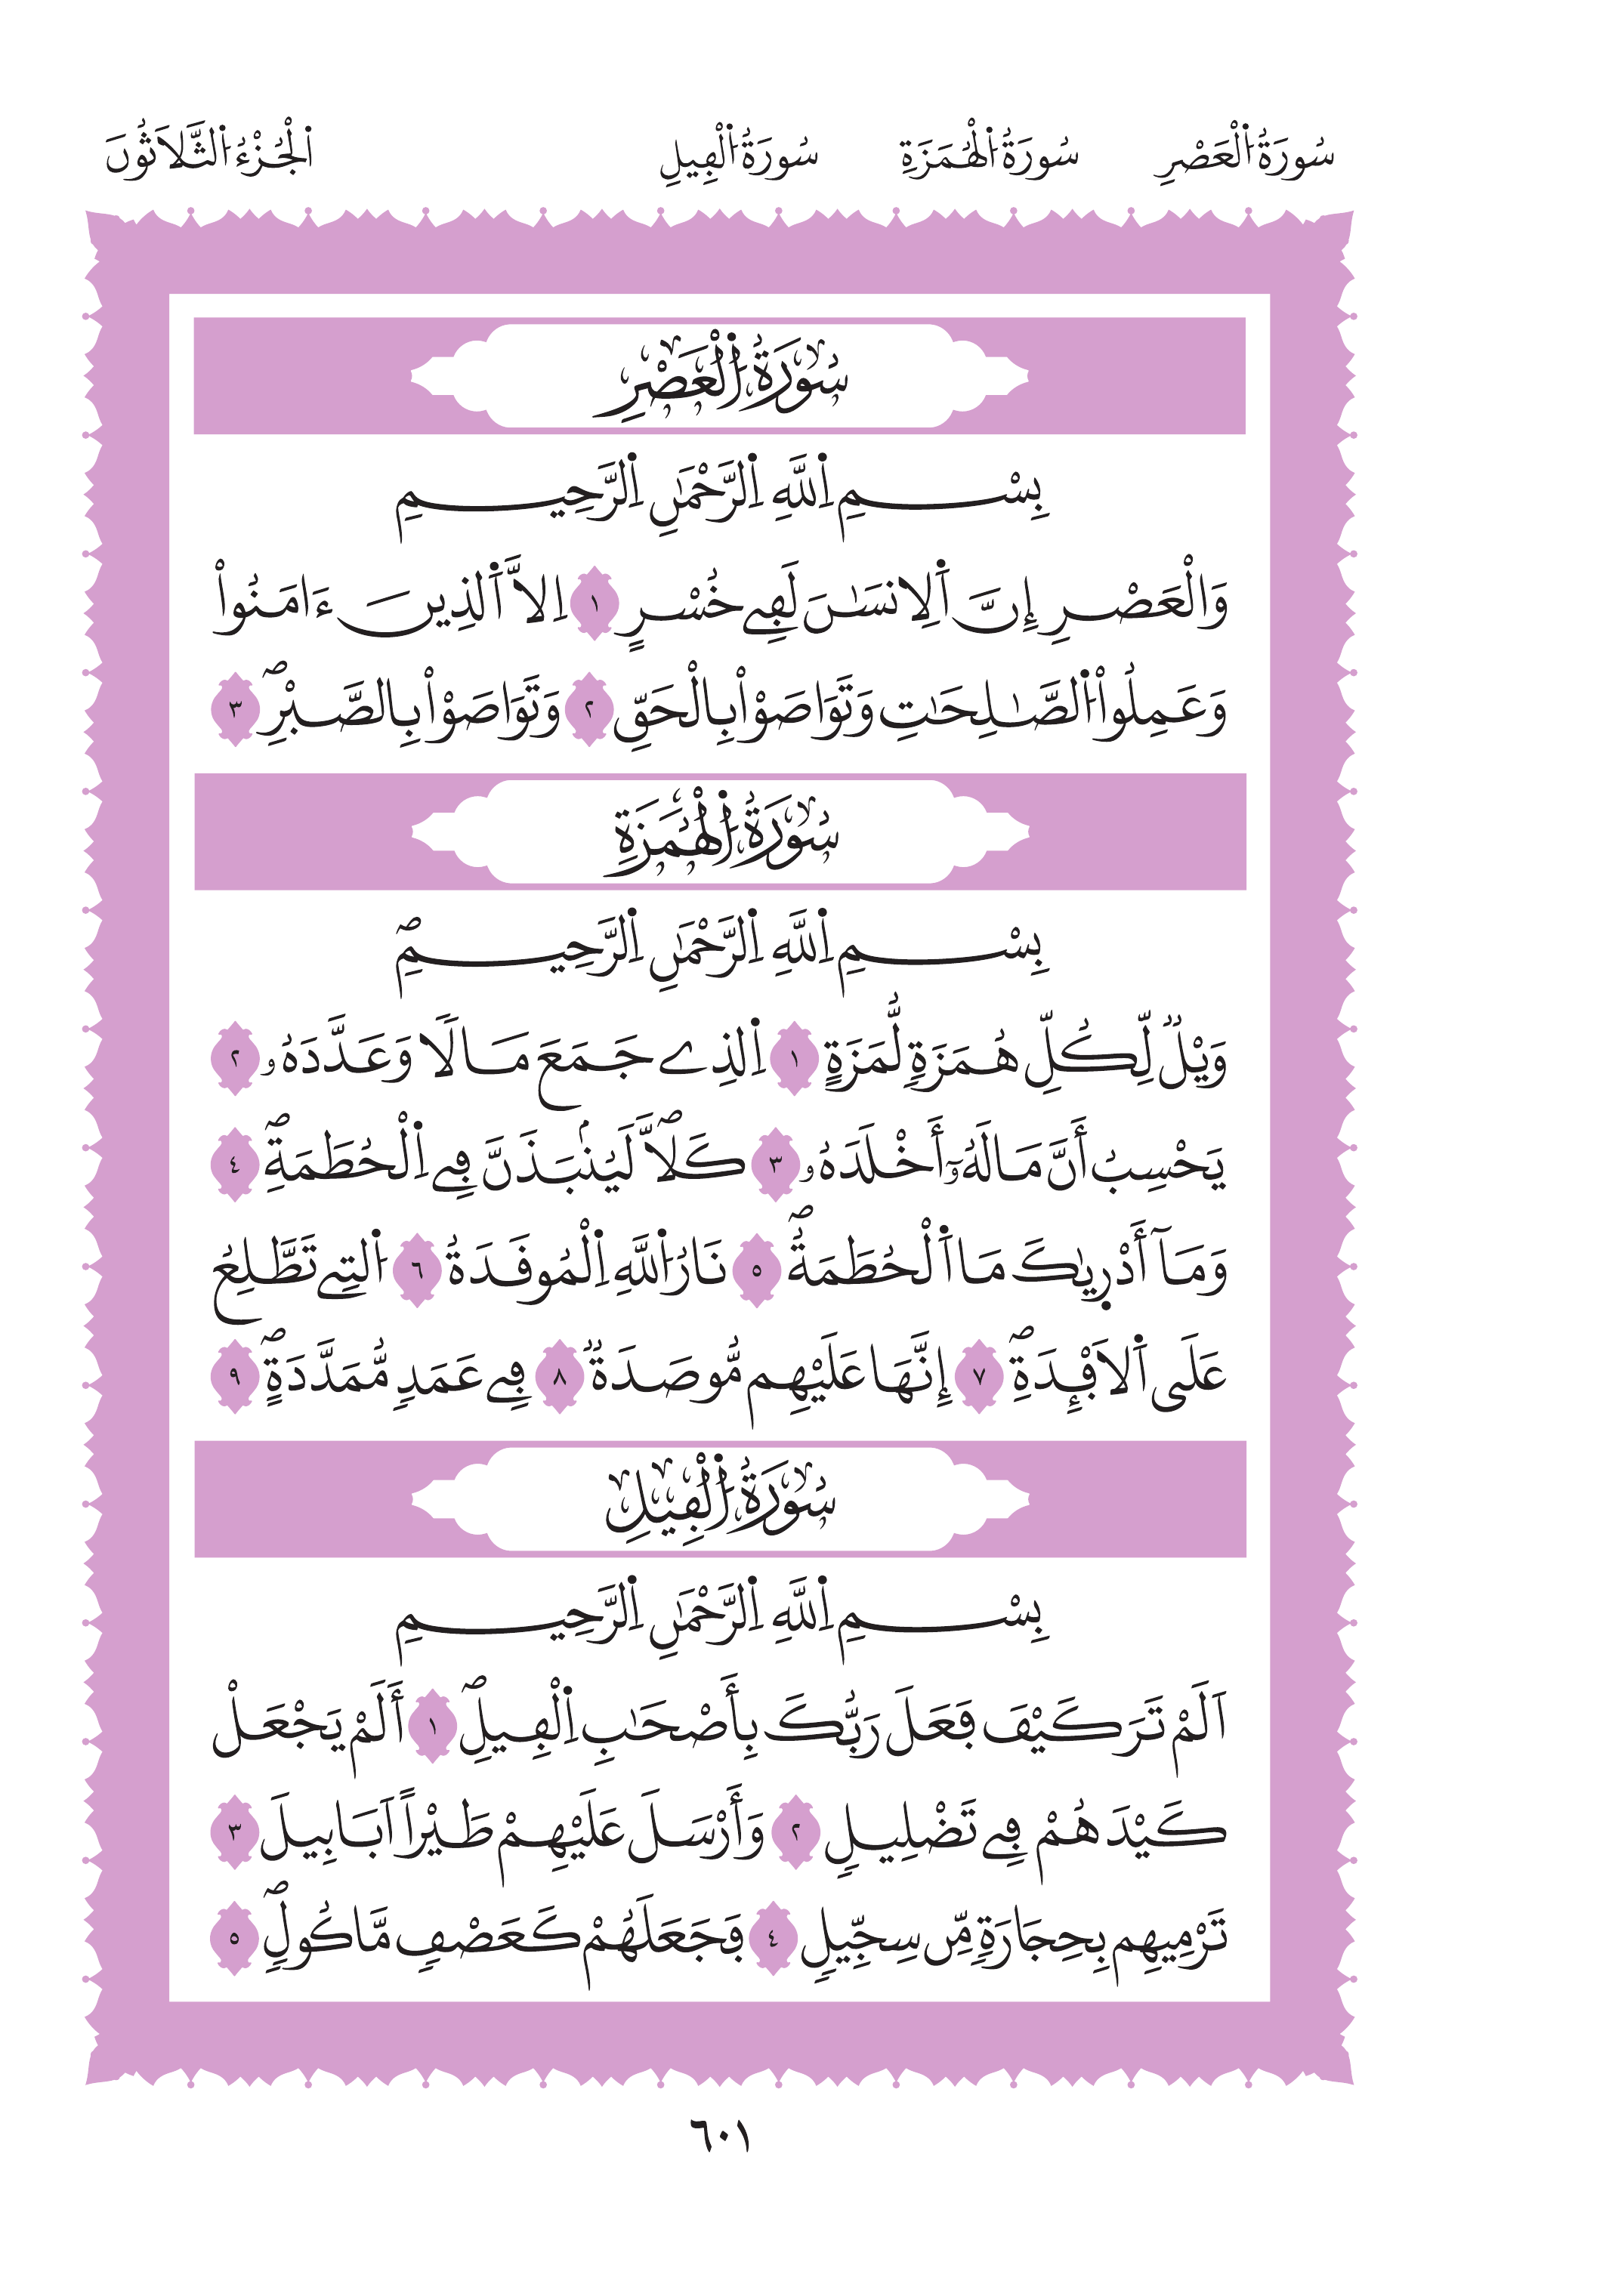 سُورَةُ اُ۬لْعَصْرِ سُورَةُ اُ۬لْهُمَزَةِ سُورَةُ اُ۬لْفِيلِ اَ۬لْجُزْءُ اُ۬لثَّلَاثُونَ
سُورَةُ اُ۬لْعَصْرِ
بِسْمِ اِ۬للَّهِ اِ۬لرَّحْمَٰنِ اِ۬لرَّحِيمِ
وَالْعَصْرِ إِنَّ اَ۬لِانسَٰنَ لَفِے خُسْرٍ ١ اِلاَّ اَ۬لذِينَ ءَامَنُواْ
وَعَمِلُواْ اُ۬لصَّٰلِحَٰتِ وَتَوَاصَوْاْ بِالْحَقِّ ٢ وَتَوَاصَوْاْ بِالصَّبْرِۖ ٣
سُورَةُ اُ۬لْهُمَزَةِ
بِسْمِ اِ۬للَّهِ اِ۬لرَّحْمَٰنِ اِ۬لرَّحِيمِۖ
وَيْلٌ لِّكُلِّ هُمَزَةٍ لُّمَزَةٍ ١ اِ۬لذِے جَمَعَ مَالًا وَعَدَّدَهُۥ ٢
يَحْسِبُ أَنَّ مَالَهُۥٓ أَخْلَدَهُۥ ٣ كَلَّاۖ لَيُنۢبَذَنَّ فِے اِ۬لْحُطَمَةِۖ ٤
وَمَآ أَدْر۪يٰكَ مَا اَ۬لْحُطَمَةُۖ ٥ نَارُ اُ۬للَّهِ اِ۬لْمُوقَدَةُ ٦ اُ۬لتِے تَطَّلِعُ
عَلَى اَ۬لَافْـِٕدَةِۖ ٧ إِنَّهَا عَلَيْهِم مُّوصَدَةٌ ٨ فِے عَمَدٍ مُّمَدَّدَةٍۖ ٩
سُورَةُ اُ۬لْفِيلِ
بِسْمِ اِ۬للَّهِ اِ۬لرَّحْمَٰنِ اِ۬لرَّحِيمِ
اَلَمْ تَرَ كَيْفَ فَعَلَ رَبُّكَ بِأَصْحَٰبِ اِ۬لْفِيلِۖ ١ أَلَمْ يَجْعَلْ
كَيْدَهُمْ فِے تَضْلِيلٍ ٢ وَأَرْسَلَ عَلَيْهِمْ طَيْراً اَبَابِيلَ ٣
تَرْمِيهِم بِحِجَارَةٍ مِّن سِجِّيلٍ ٤ فَجَعَلَهُمْ كَعَصْفٍ مَّاكُولٍۖ ٥
٦٠١